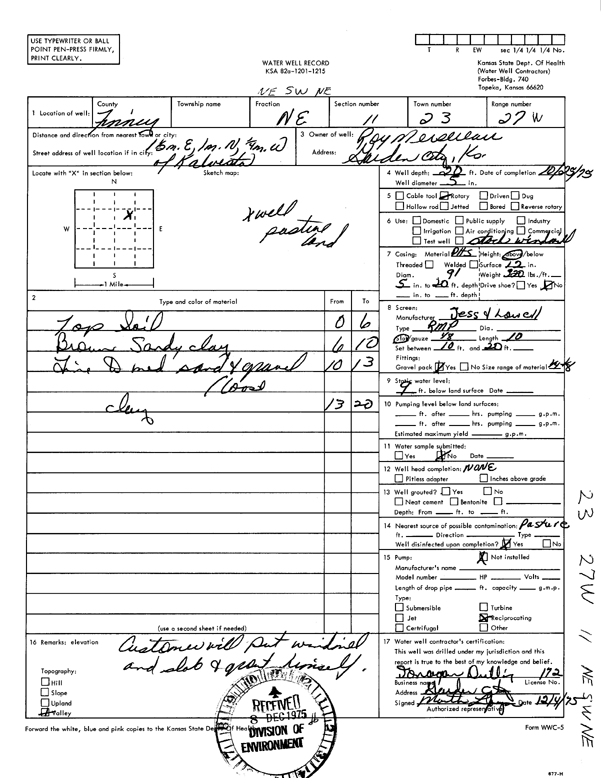 USE TYPEWRITER OR BALL
POINT PEN-PRESS FIRMLY,
PRINT CLEARLY.
T R EW sec 1/4 1/4 1/4 No.
WATER WELL RECORD
KSA 82a-1201-1215
Kansas State Dept. Of Health
(Water Well Contractors)
Forbes-Bldg. 740
Topeka, Kansas 66620
NE SW NE
1 Location of well: County Finney Township name Fraction NE Section number 11 Town number 23 Range number 27 W
Distance and direction from nearest town or city: 1 E, 1 m. N,
Street address of well location if in city: of Kalvesta
3 Owner of well: Roy
Address: Garden City, Ks.
Locate with "X" in section below:
Sketch map:
N
W E
S
1 Mile
X
X well
pasture
land
4 Well depth: 20 ft. Date of completion
Well diameter 5 in.
5 Cable tool Rotary Driven Dug
Hollow rod Jetted Bored Reverse rotary
6 Use: Domestic Public supply Industry
Irrigation Air conditioning Commercial
Test well Stock windmill
7 Casing: Material Height: above/below
Threaded Welded Surface 12 in.
Diam. 91 Weight lbs./ft.
5 in. to 20 ft. depth Drive shoe? Yes No
in. to ft. depth
2 Type and color of material From To
Top Soil 0 6
Brown Sandy clay 6 10
Fine to med sand & gravel 10 13
(loose
clay 13 20
(use a second sheet if needed)
8 Screen:
Manufacturer Jess & Lowell
Type RMP Dia.
Slot/gauze 1/8 Length 10
Set between 10 ft. and 20 ft.
Fittings:
Gravel pack Yes No Size range of material
9 Static water level:
ft. below land surface Date
10 Pumping level below land surfaces:
ft. after hrs. pumping g.p.m.
ft. after hrs. pumping g.p.m.
Estimated maximum yield g.p.m.
11 Water sample submitted:
Yes No Date
12 Well head completion: NONE
Pitless adapter Inches above grade
13 Well grouted? Yes No
Neat cement Bentonite
Depth: From ft. to ft.
14 Nearest source of possible contamination: Pasture
ft. Direction Type
Well disinfected upon completion? Yes No
15 Pump: Not installed
Manufacturer's name
Model number HP Volts
Length of drop pipe ft. capacity g.p.m.
Type:
Submersible Turbine
Jet Reciprocating
Centrifugal Other
16 Remarks: elevation Customer will put windmill
and slab & grout himself.
Topography:
Hill
Slope
Upland
Valley
RECEIVED
8 DEC 1975
DIVISION OF
ENVIRONMENT
17 Water well contractor's certification:
This well was drilled under my jurisdiction and this
report is true to the best of my knowledge and belief.
172
Business name License No.
Address Garden City
Signed Date 12/4/75
Authorized representative
Forward the white, blue and pink copies to the Kansas State Dept. Of Health
Form WWC-5
677-H
23 27W 11 NE SW NE